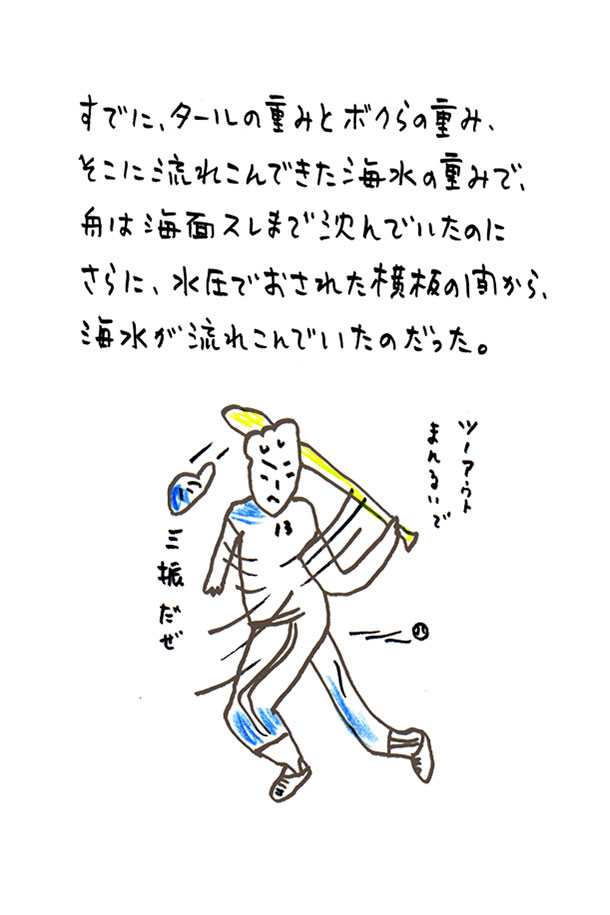 すでに、タールの重みとボクらの重み、
そこに流れこんできた海水の重みで、
舟は海面スレまで沈んでいたのに
さらに、水圧でおされた横板の間から、
海水が流れこんでいたのだった。
ツーアウト
まんるいで
三振だぜ
13